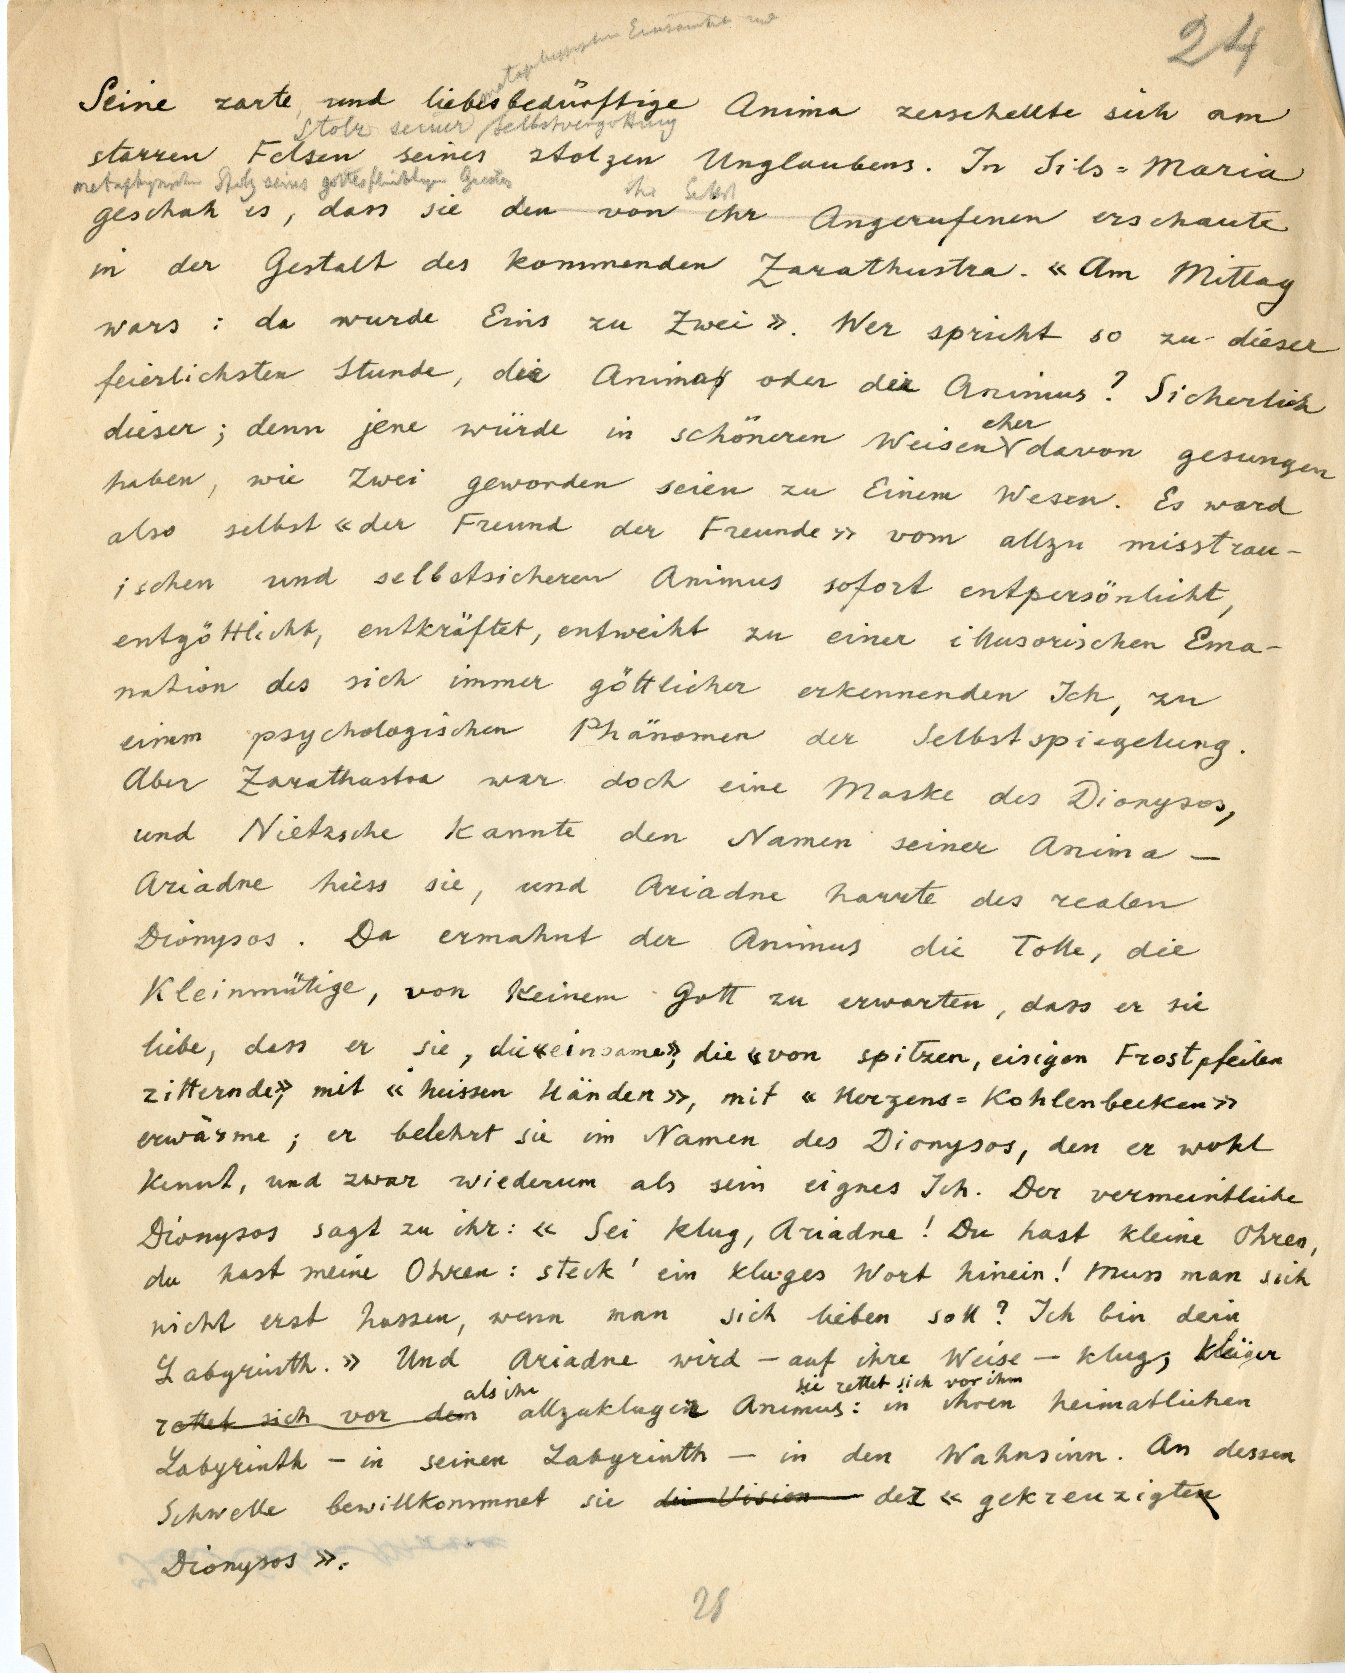 24
metaphysischen Einsamkeit und
Seine zarte und liebesbedürftige Anima zerschellte sich am
Stolz seiner Selbstvergottung
starren Felsen seines stolzen Unglaubens. In Sils=Maria
metaphysischen Stolz seines gottesflüchtigen Geistes ihr Selbst
geschah es, dass sie den von ihr Angerufenen erschaute
in der Gestalt des kommenden Zarathustra. « Am Mittag
wars : da wurde Eins zu Zwei ». Wer spricht so zu dieser
feierlichsten Stunde, die Anima oder der Animus? Sicherlich
eher
dieser ; denn jene würde in schöneren Weisen davon gesungen
haben, wie Zwei geworden seien zu Einem Wesen. Es ward
also selbst « der Freund der Freunde » vom allzu misstrau-
ischen und selbstsicheren Animus sofort entpersönlicht,
entgöttlicht, entkräftet, entweiht zu einer illusorischen Ema-
nation des sich immer göttlicher erkennenden Ich, zu
einem psychologischen Phänomen der Selbstspiegelung.
Aber Zarathustra war doch eine Maske des Dionysos,
und Nietzsche kannte den Namen seiner Anima —
Ariadne hiess sie, und Ariadne harrte des realen
Dionysos. Da ermahnt der Animus die Tolle, die
Kleinmütige, von keinem Gott zu erwarten, dass er sie
liebe, dass er sie, die «einsame», die «von spitzen, eisigen Frostpfeilen
zitternde», mit « heissen Händen », mit « Herzens=Kohlenbecken »
erwärme ; er belehrt sie im Namen des Dionysos, den er wohl
kennt, und zwar wiederum als sein eignes Ich. Der vermeintliche
Dionysos sagt zu ihr : « Sei klug, Ariadne ! Du hast kleine Ohren,
du hast meine Ohren : steck' ein kluges Wort hinein ! Muss man sich
nicht erst hassen, wenn man sich lieben soll ? Ich bin dein
Labyrinth. » Und Ariadne wird — auf ihre Weise — klug, klüger
als ihr sie rettet sich vor ihm
rettet sich vor dem allzukluger Animus : in ihren heimatlichen
Labyrinth — in seinen Labyrinth — in den Wahnsinn. An dessen
Schwelle bewillkommnet sie die Vision der « gekreuzigte
Dionysos ».
28